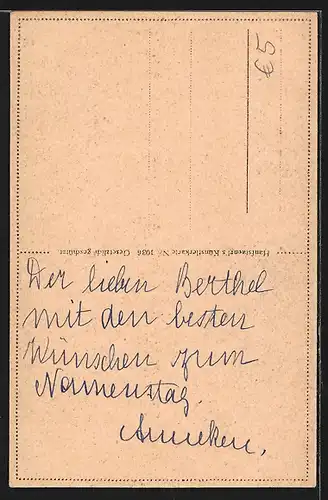 €5
Hanfstaengl's Künstlerkarte Nr. 1936 Gesetzlich geschützt
Der lieben Berthel
mit den besten
Wünschen zum
Namenstag.
Anneken.